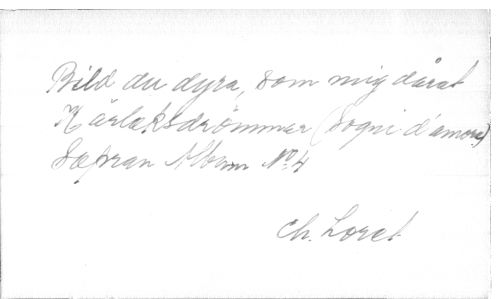 Bild du dyra, som mig dårat
Kärleksdrömmer (Sogni d'amore)
Sopran Album No 4
Ch. Loret